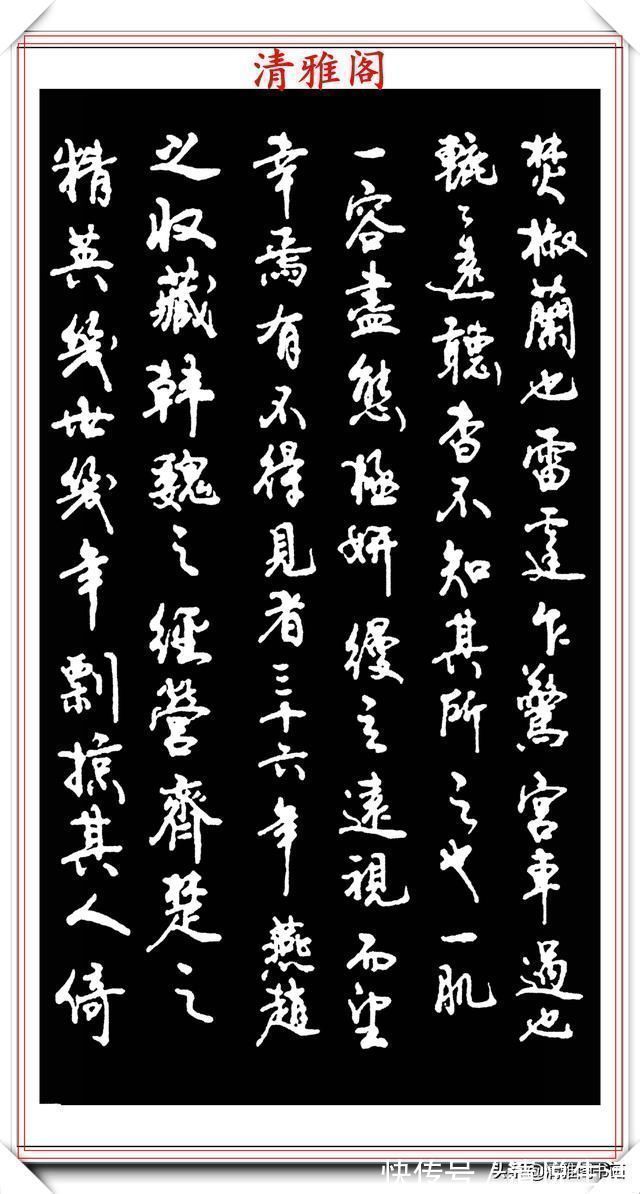 清雅阁
焚椒蘭也雷霆乍驚宮車過也
轆々遠聽杳不知其所之也一肌
一容盡態極妍縵立遠視而望
幸焉有不得見者三十六年燕趙
之收藏韓魏之經營齊楚之
精英幾世幾年剽掠其人倚
快传号